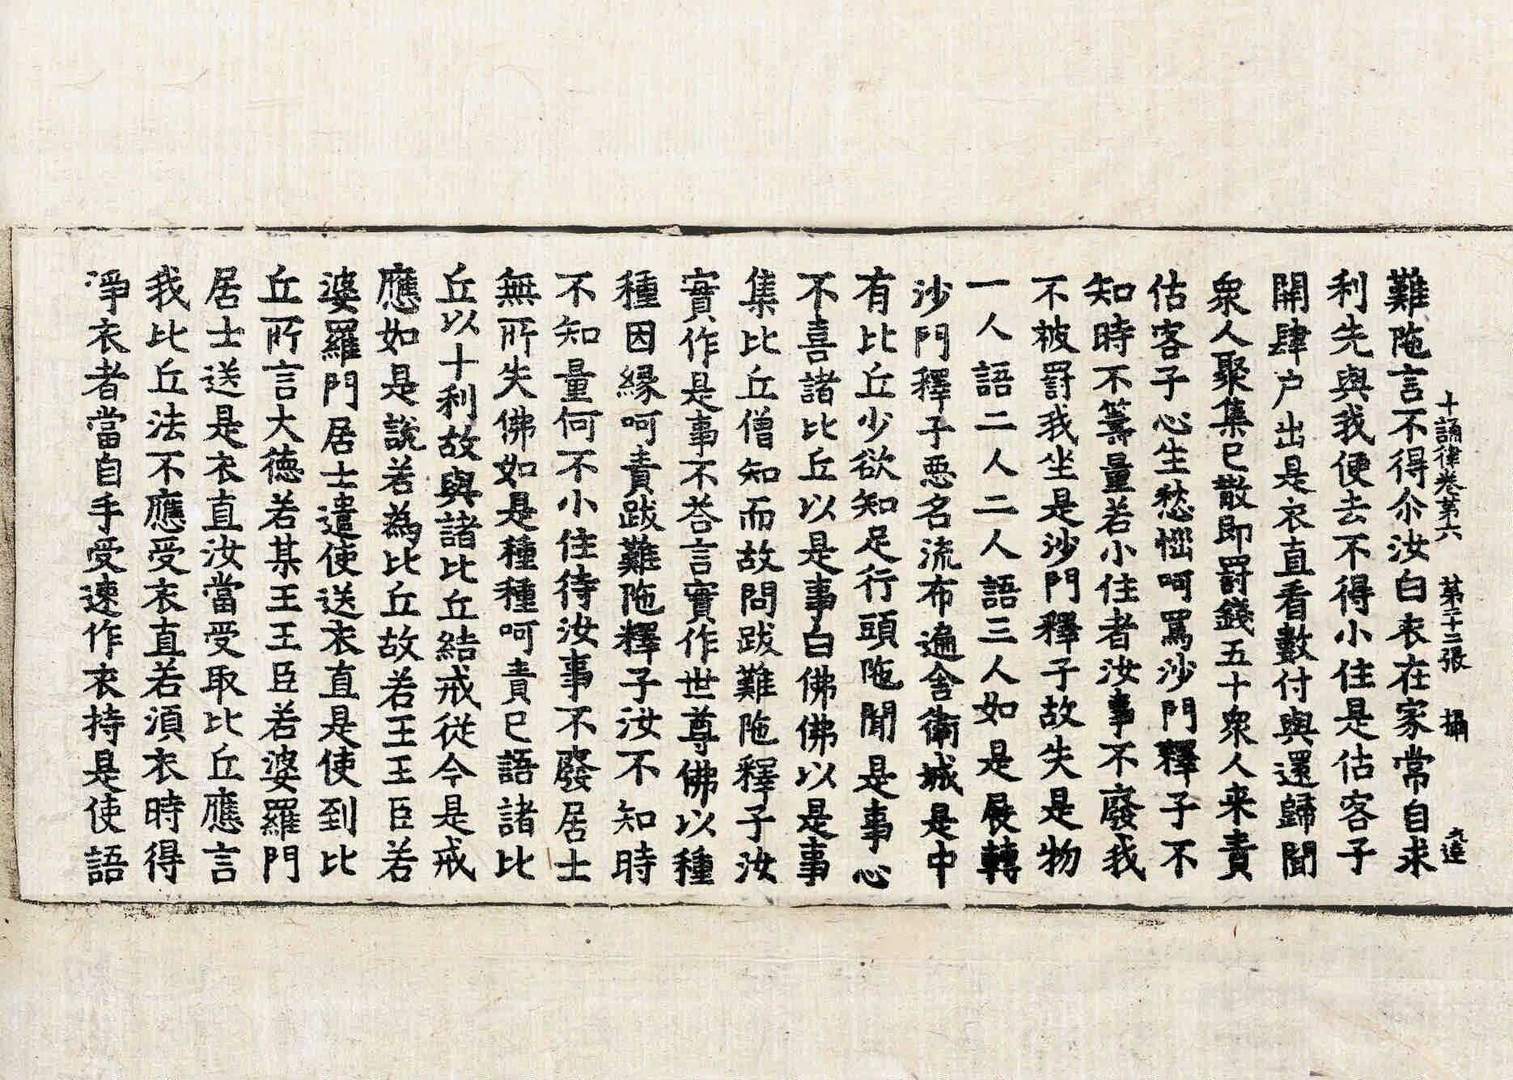 十誦律卷第六 第二十二張 攝
難陁言不得尒汝白衣在家常自求
利先與我便去不得小住是估客子
開肆户出是衣直看數付與還歸聞
衆人聚集已散即罸錢五十衆人来責
估客子心生愁惱呵罵沙門釋子不
知時不籌量若小住者汝事不廢我
不被罸我坐是沙門釋子故失是物
一人語二人二人語三人如是展轉
沙門釋子惡名流布遍舍衛城是中
有比丘少欲知足行頭陁聞是事心
不喜諸比丘以是事白佛佛以是事
集比丘僧知而故問跋難陁釋子汝
實作是事不荅言實作世尊佛以種
種因緣呵責跋難陁釋子汝不知時
不知量何不小住待汝事不廢居士
無所失佛如是種種呵責已語諸比
丘以十利故與諸比丘結戒從今是戒
應如是說若為比丘故若王王臣若
婆羅門居士遣使送衣直是使到比
丘所言大德若某王王臣若婆羅門
居士送是衣直汝當受取比丘應言
我比丘法不應受衣直若湏衣時得
淨衣者當自手受速作衣持是使語